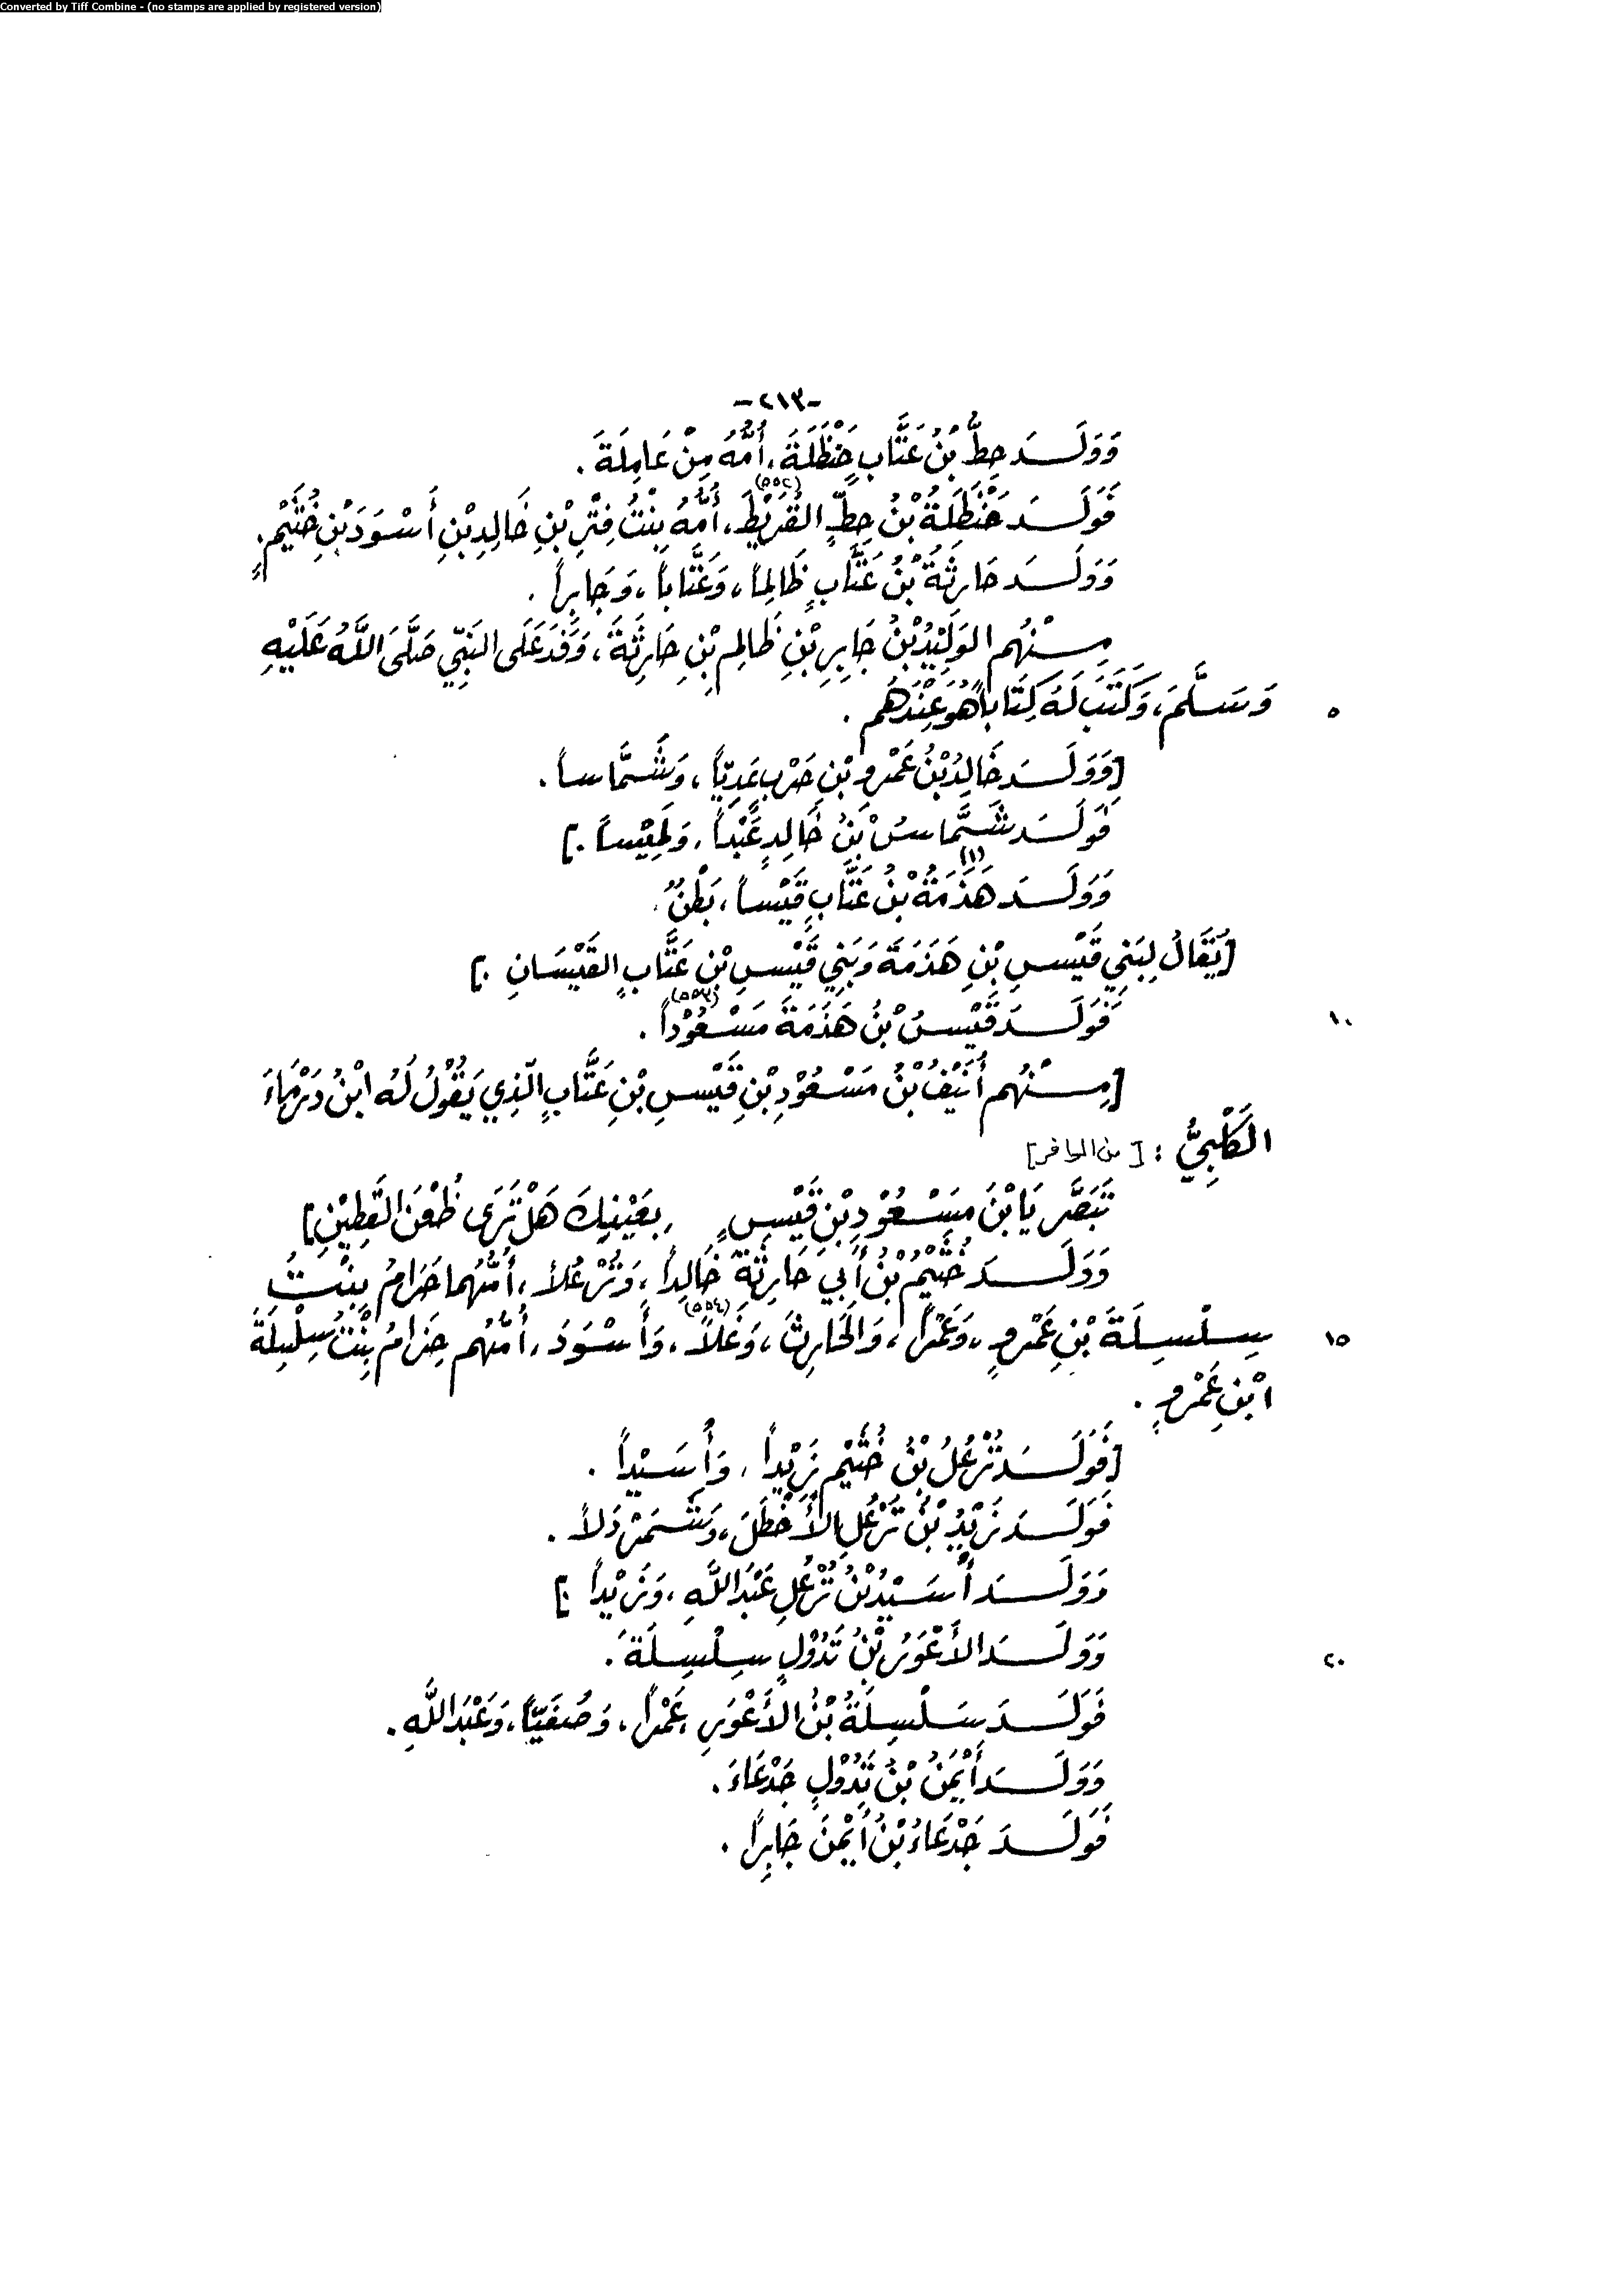 Converted by Tiff Combine - (no stamps are applied by registered version)
-٢١٣-
وَوَلَــدَ حِطُّ بْنُ عَتَّابٍ حَنْظَلَةَ، أُمُّهُ مِنْ عَامِلَةَ .
فَوَلَــدَ حَنْظَلَةُ بْنُ حِطٍّ القُرَيْطَ(٥٥٢)، أُمُّهُ بِنْتُ فِتْرِ بْنِ خَالِدِ بْنِ أَسْوَدَ بْنِ خُثَيْمٍ.
وَوَلَــدَ حَارِثَةُ بْنُ عَتَّابٍ ظَالِماً، وَعَتَّاباً، وَجَابِراً .
مِــنْهُم الوَلِيْدُ بْنُ جَابِرِ بْنِ ظَالِمِ بْنِ حَارِثَةَ، وَفَدَ عَلَى النَّبِيِّ صَلَّى اللَّهُ عَلَيْهِ
٥ وَسَلَّمَ، وَكَتَبَ لَهُ كِتَاباً هُوَ عِنْدَهُم .
[وَوَلَــدَ خَالِدُ بْنُ عَمْرِو بْنِ حَرْبٍ عَدِيّاً، وَشَمَّاساً .
فَوَلَــدَ شَمَّاسُ بْنُ خَالِدٍ عَبْداً، وَلَمِيْساً .]
وَوَلَــدَ هَذَمَةُ(١) بْنُ عَتَّابٍ قَيْساً، بَطْنٌ .
[يُقَالُ لِبَنِي قَيْسِ بْنِ هَذَمَةَ وَبَنِي قَيْسِ بْنِ عَتَّابٍ القَيْسَانِ .]
١٠ فَوَلَــدَ قَيْسُ بْنُ هَذَمَةَ مَسْعُوْداً(٥٥٣) .
[مِــنْهُم أُنَيْفُ بْنُ مَسْعُوْدِ بْنِ قَيْسِ بْنِ عَتَّابٍ الَّذِي يَقُوْلُ لَهُ ابْنُ دَرْمَاءَ
الكَلْبِيُّ : [من الوافر]
تَبَصَّر يَا بْنَ مَسْعُوْدِ بْنِ قَيْسٍ بِعَيْنِكَ هَلْ تَرَى ظُعْنَ القَطِيْنِ]
وَوَلَــدَ خُثَيْمُ بْنُ أَبِي حَارِثَةَ خَالِداً، وَثُرْعُلاً، أُمُّهُما حَرَامُ بِنْتُ
١٥ سِلْسِلَةَ بْنِ عَمْرٍو، وَعَمْراً، وَالحَارِثَ، وَعَلاً(٥٥٤)، وَأَسْوَدَ، أُمُّهُم حِزَامُ بِنْتُ سِلْسِلَةَ
ابْنِ عَمْرٍو .
[فَوَلَــدَ ثُرْعُلُ بْنُ خُثَيْمٍ زَيْداً، وَأُسَيْداً .
فَوَلَــدَ زَيْدُ بْنُ ثُرْعُلٍ الأَخْطَلَ، وَشَمَرْدَلاً .
وَوَلَــدَ أُسَيْدُ بْنُ ثُرْعُلٍ عَبْدَ اللَّهِ، وَزَيْداً .]
٢٠ وَوَلَــدَ الأَعْوَرُ بْنُ تَدُوْلٍ سِلْسِلَةَ .
فَوَلَــدَ سَلْسِلَةُ بْنُ الأَعْوَرِ عَمْراً، وَصُفَيّاً، وَعَبْدَ اللَّهِ .
وَوَلَــدَ أَيْمَنُ بْنُ تَدُوْلٍ جَدْعَاءَ .
فَوَلَــدَ جَدْعَاءُ بْنُ أَيْمَنَ جَابِراً .